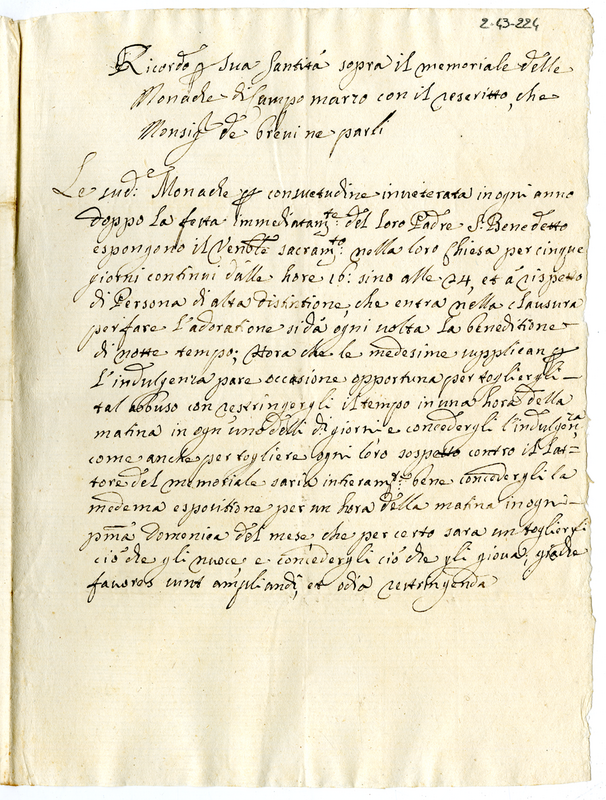 2-43-224
Ricordo p Sua Santità sopra il memoriale delle
Monache di Campo marzo con il rescritto, che
Monsig.r de brevi ne parli
Le sud.e Monache p consuetudine inveterata in ogni anno
doppo la festa immediatam.te del loro Padre S. Benedetto
espongono il Venble sacram.to nella loro Chiesa per cinque
giorni continui dalle hore 16: sino alle 24, et à rispetto
di Persona di alta distintione, che entra nella clausura
per fare l'adoratione si dà ogni volta la beneditione
di notte tempo; Hora che le medesime supplican p
l'indulgenza pare occasione opportuna per togliergli
tal abbuso con restringergli il tempo in una hora della
matina in ogn'uno delli d.i giorni e concedergli l'indulgenza,
come anche per togliere ogni loro sospetto contro il Lat=
tore del memoriale saria intieram.te bene concedergli la
medema espositione per un hora della matina in ogni
pma domenica del mese che per certo sara un togliergli
ciò che gli nuoce e concedergli ciò che gli giova, giache
favores sunt ampliandi, et odia restringenda